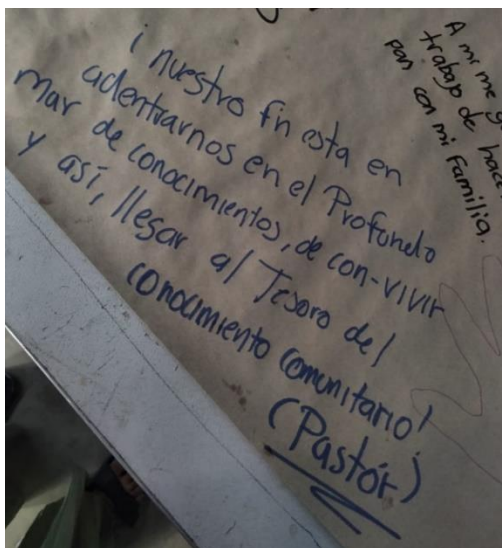 ¡ nuestro fin esta en
adentrarnos en el Profundo
mar de conocimientos, de con-vivir
y así, llegar al Tesoro del
conocimiento comunitario!
(Pastór)
A mi me
trabajo de
pan con mi familia.